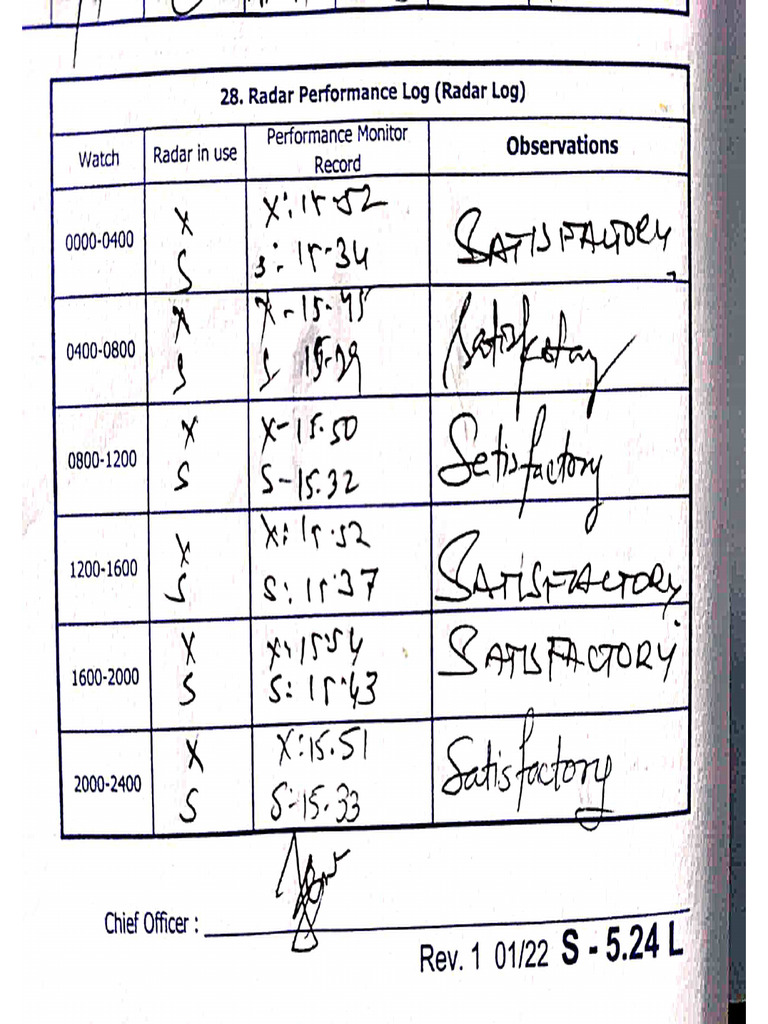 28. Radar Performance Log (Radar Log)
Watch Radar in use Performance Monitor Record Observations
0000-0400 X X: 15.52 SATISFACTORY
S S: 15.34
0400-0800 X X - 15.45 Satisfactory
S S 15.39
0800-1200 X X - 15.50 Setisfactory
S S - 15.32
1200-1600 X X: 15.52 SATISFACTORY
S S: 15.37
1600-2000 X X: 15.54 SATISFACTORY
S S: 15.43
2000-2400 X X: 15.51 Satisfactory
S S: 15.33
Chief Officer :
Rev. 1 01/22 S - 5.24 L